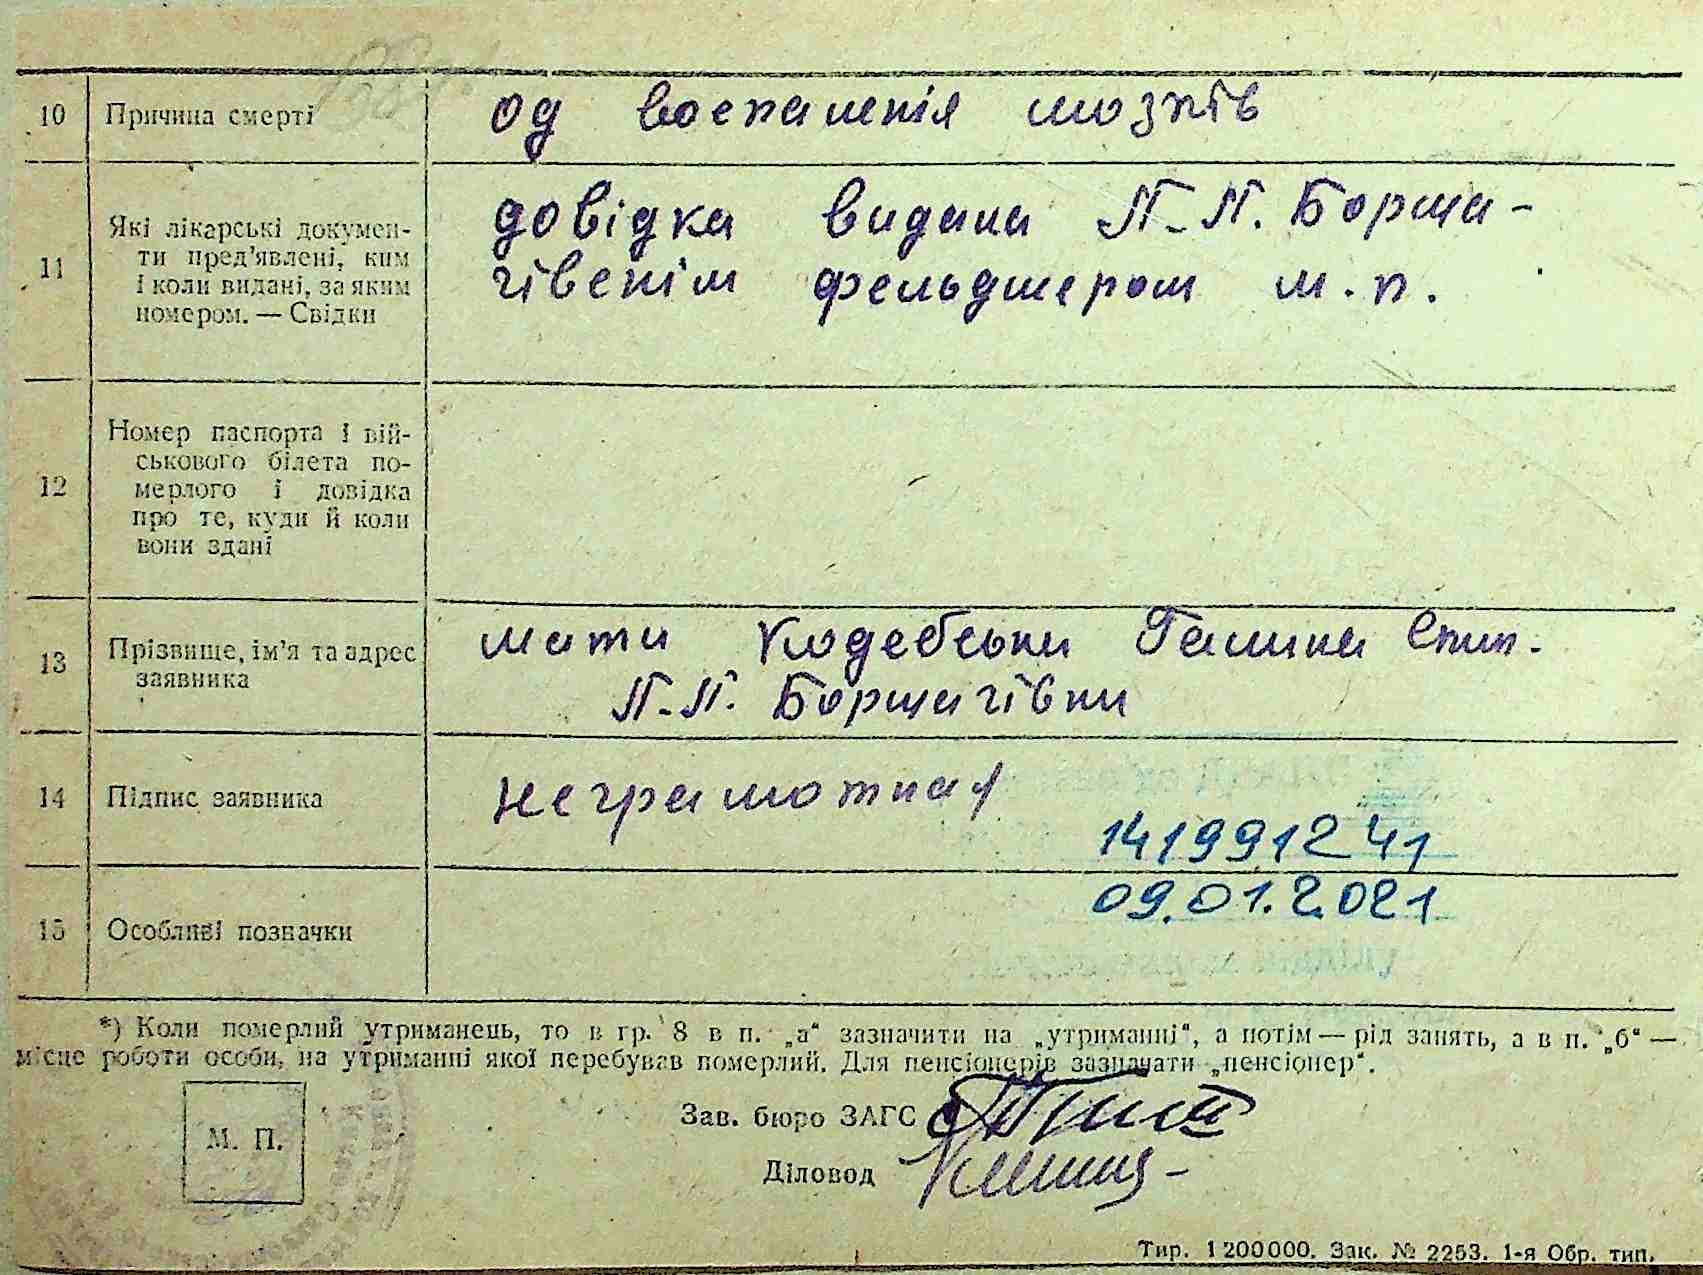 10 Причина смерті од воспаленія мозків
11 Які лікарські докумен-
ти пред'явлені, ким
і коли видані, за яким
номером. — Свідки
довідка видана П-П. Борща-
гівскім фельдшером м.п.
12 Номер паспорта і вій-
ськового білета по-
мерлого і довідка
про те, куди й коли
вони здані
13 Прізвище, ім'я та адрес
заявника
мати Ходебськи Галина
П-П. Борщагівки
14 Підпис заявника неграмотная
1419991241
09.01.2021
15 Особливі позначки
*) Коли померлий утриманець, то в гр. 8 в п. „а“ зазначити на „утриманні“, а потім — рід занять, а в п. „б“ —
місце роботи особи, на утриманні якої перебував померлий. Для пенсіонерів зазначати „пенсіонер“.
Зав. бюро ЗАГС
М. П.
Діловод
Тир. 1200000. Зак. № 2253. 1-я Обр. тип.